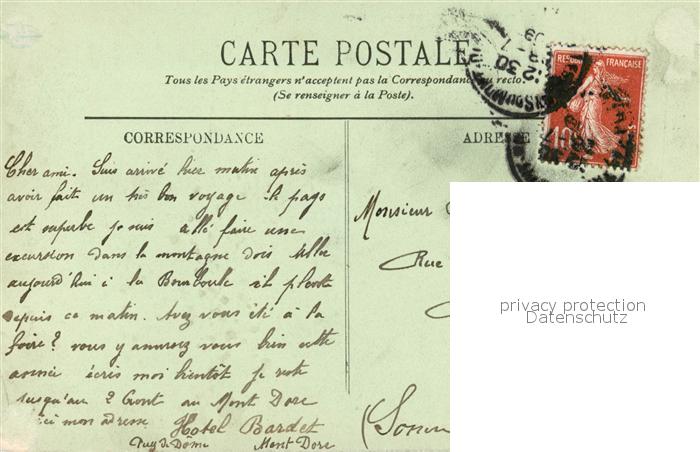 CARTE POSTALE
Tous les Pays étrangers n'acceptent pas la Correspondance au recto
(Se renseigner à la Poste).
CORRESPONDANCE
ADRESSE
FRANÇAISE
10
Cher ami. Suis arrivé hier matin après
avoir fait un très bon voyage le pays
est superbe je suis allé faire une
excursion dans la montagne dois aller
aujourd'hui à la Bourboule il pleut
depuis ce matin. Avez vous été à la
foire? vous y amusez vous bien cette
année écris moi bientôt je reste
jusqu'au 2 Aout au Mont Dore
ici mon adresse Hotel Bardet
Puy de Dôme Mont Dore
Monsieur
Rue
privacy protection
Datenschutz